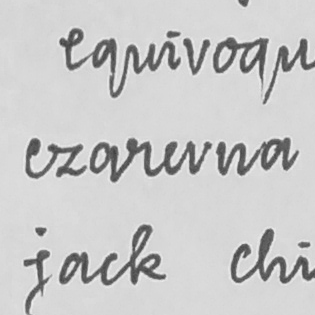 equivoqu
czarevna
jack chi